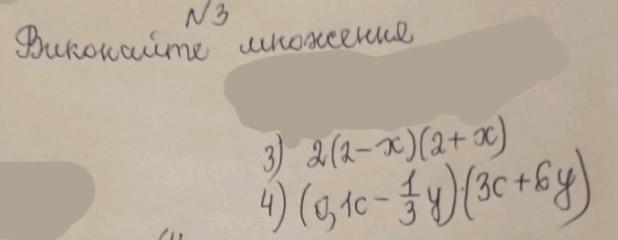 N3
Виконайте множення
3) 2(2-x)(2+x)
4) (0,1c - 1/3 y)(3c+6y)